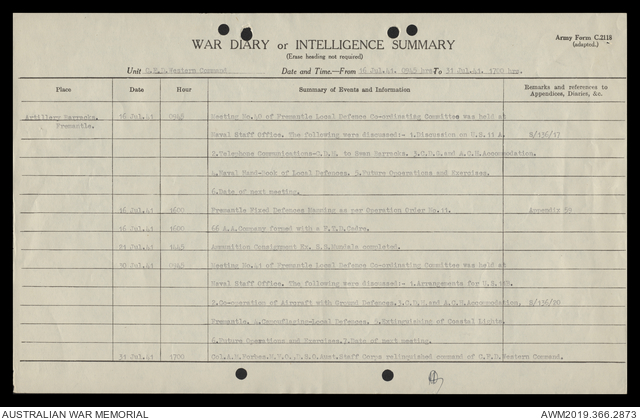 Army Form C.2118
(adapted.)
WAR DIARY or INTELLIGENCE SUMMARY
(Erase heading not required)
Unit Western Command Date and Time.—From 16 Jul.41. 0945 hrs To 31 Jul.41. 1700 hrs.
Place Date Hour Summary of Events and Information Remarks and references to Appendices, Diaries, &c.
Artillery Barracks, Fremantle. 16 Jul.41 0945 Meeting No.40 of Fremantle Local Defence Co-ordinating Committee was held at
Naval Staff Office. The following were discussed:- 1.Discussion on U.B.11 A. S/136/17
2.Telephone Communications- to Swan Barracks. 3. and A.O.H Accomodation.
4.Naval Hand-book of Local Defences. 5.Future Operations and Exercises.
6.Date of next meeting.
16 Jul.41 1600 Fremantle Fixed Defences Manning as per Operation Order No.11. Appendix
16 Jul.41 1600 66 A.A.Company formed with a Cadre.
21 Jul.41 1445 Ammunition Consignment Ex. completed.
30 Jul.41 0945 Meeting No.41 of Fremantle Local Defence Co-ordinating Committee was held at
Naval Staff Office. The following were discussed:- 1.Arrangements for
2.Co-operation of Aircraft with Ground Defences. 3. and A.O.H Accomodation, S/136/20
Fremantle. 4.Camouflaging-Local Defences. 5.Extinguishing of Coastal Lights.
6.Future Operations and Exercises. 7.Date of next meeting.
31 Jul.41 1700 Col.A.M.Forbes. Aust.Staff Corps relinquished command of C.F.D.Western Command.
AUSTRALIAN WAR MEMORIAL AWM2019.366.2873